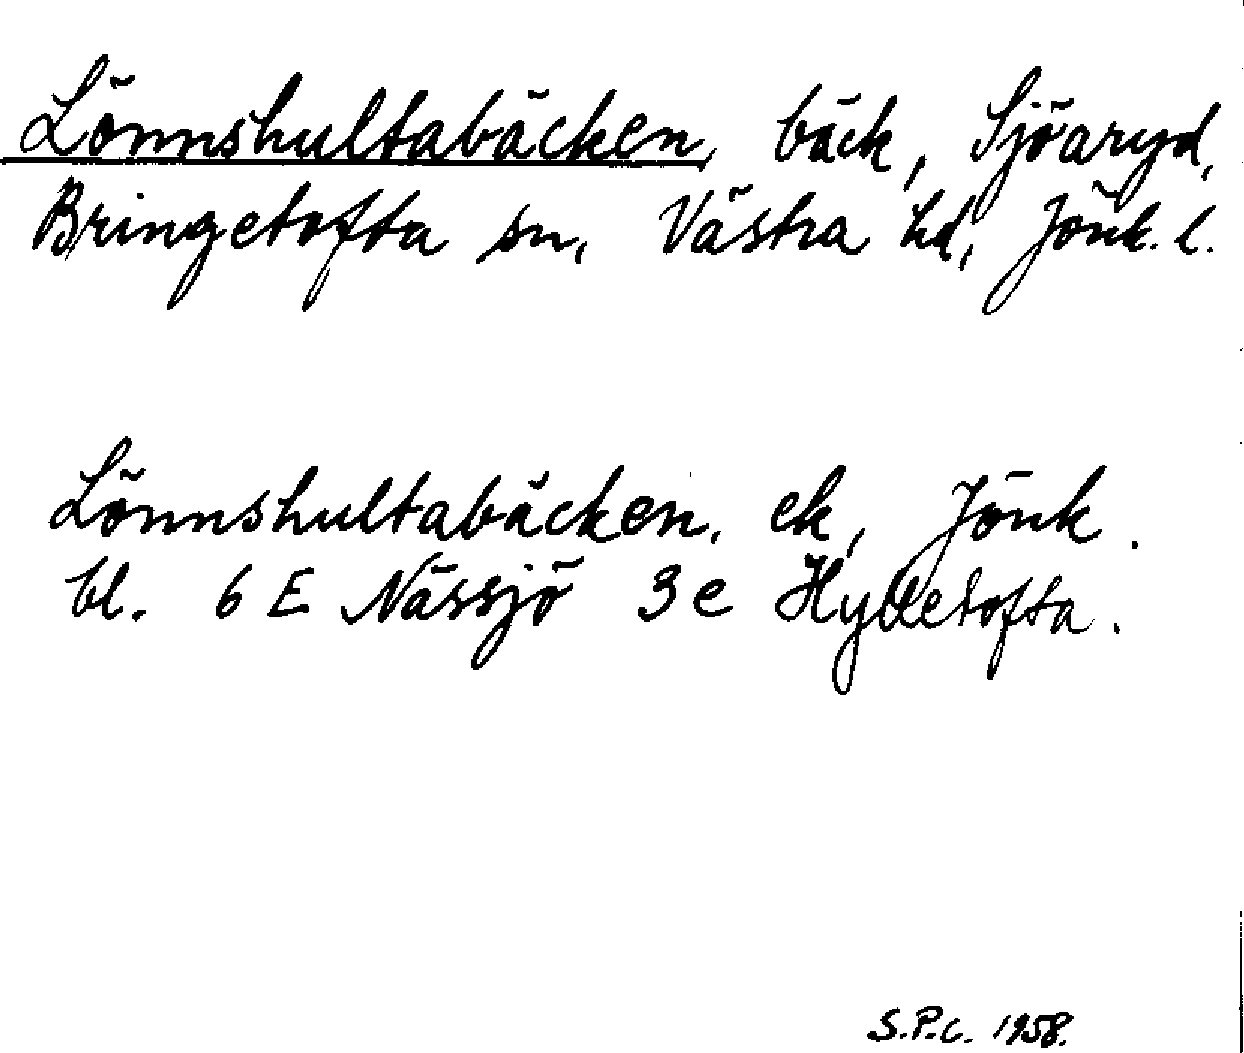 Lönnshultabäcken, bäck, Sjöaryd,
Bringetofta sn, Västra hd, Jönk. l.
Lönnshultabäcken, ek, Jönk.
bl. 6 E Nässjö 3 e Hylletofta.
S.P.C. 1958.